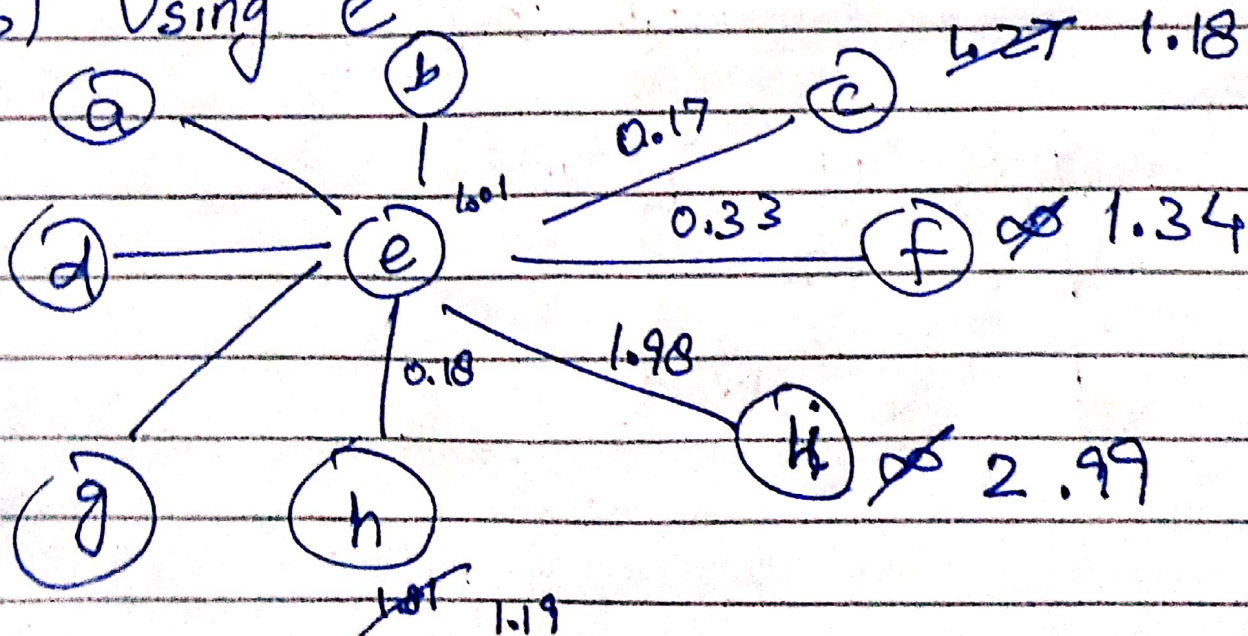 Using e
b
a
c 1.27 1.18
0.17
1.01
0.33
d
e
f ∞ 1.34
0.18
1.98
∞ 2.99
g
h
1.19